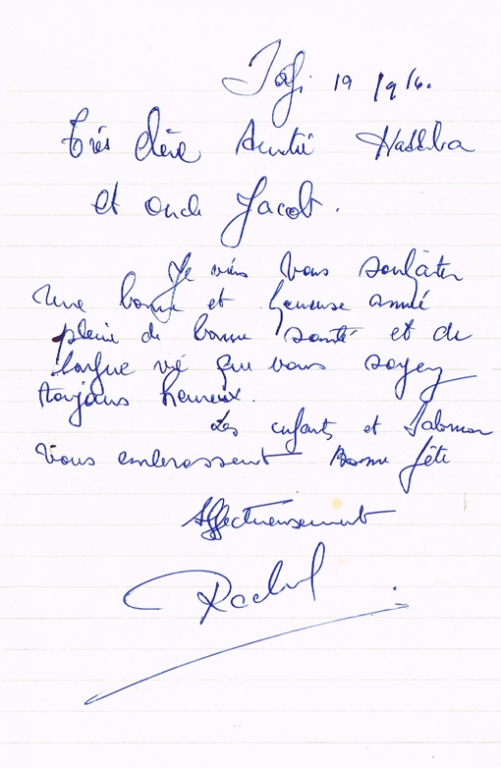 Safi 19
Très chère Auntie
et oncle Jacob.
Je viens vous souhaiter
Une bonne et heureuse année
pleine de bonne santé et de
longue vie que vous soyez
toujours heureux.
Les enfants et Salomon
Vous embrassent Bonne fête
Affectueusement
Rachel